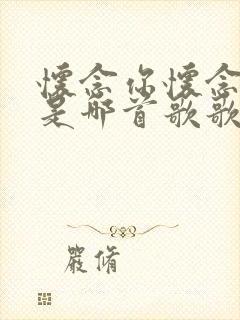 懷念你懷念
是那首歌歌
嚴脩